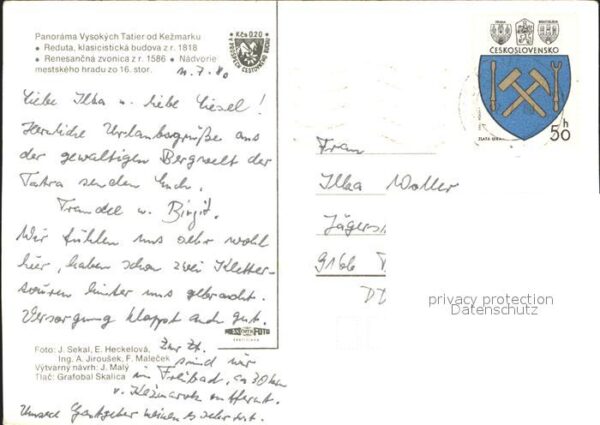 Panoráma Vysokých Tatier od Kežmarku
• Reduta, klasicistická budova z r. 1818
• Renesančná zvonica z r. 1586 • Nádvorie
mestského hradu zo 16. stor.
Kčs 0,20
V PROSPECH CESTOVNÉHO RUCHU
11.7.80
Liebe Ilka u. liebe Liesel!
Herzliche Urlaubsgrüße aus
der gewaltigen Bergwelt der
Tatra senden Euch
Traudel u. Birgit.
Wir fühlen uns sehr wohl
hier, haben schon zwei Kletter-
touren hinter uns gebracht.
Versorgung klappt auch gut.
PRESSFOTO
BRATISLAVA
Foto: J. Sekal, E. Heckelová,
Ing. A. Jiroušek, F. Maleček
Výtvarný návrh: J. Malý
Tlač: Grafobal Skalica
Zur Zt.
sind wir
im Freibad, ca 30 km
v. Kežmarok entfernt.
Unsere Gastgeber meinen es sehr gut.
PRAHA
BRATISLAVA
ČESKOSLOVENSKO
50 h
Frau
Ilka Woller
Jägers
9166
DD
privacy protection
Datenschutz